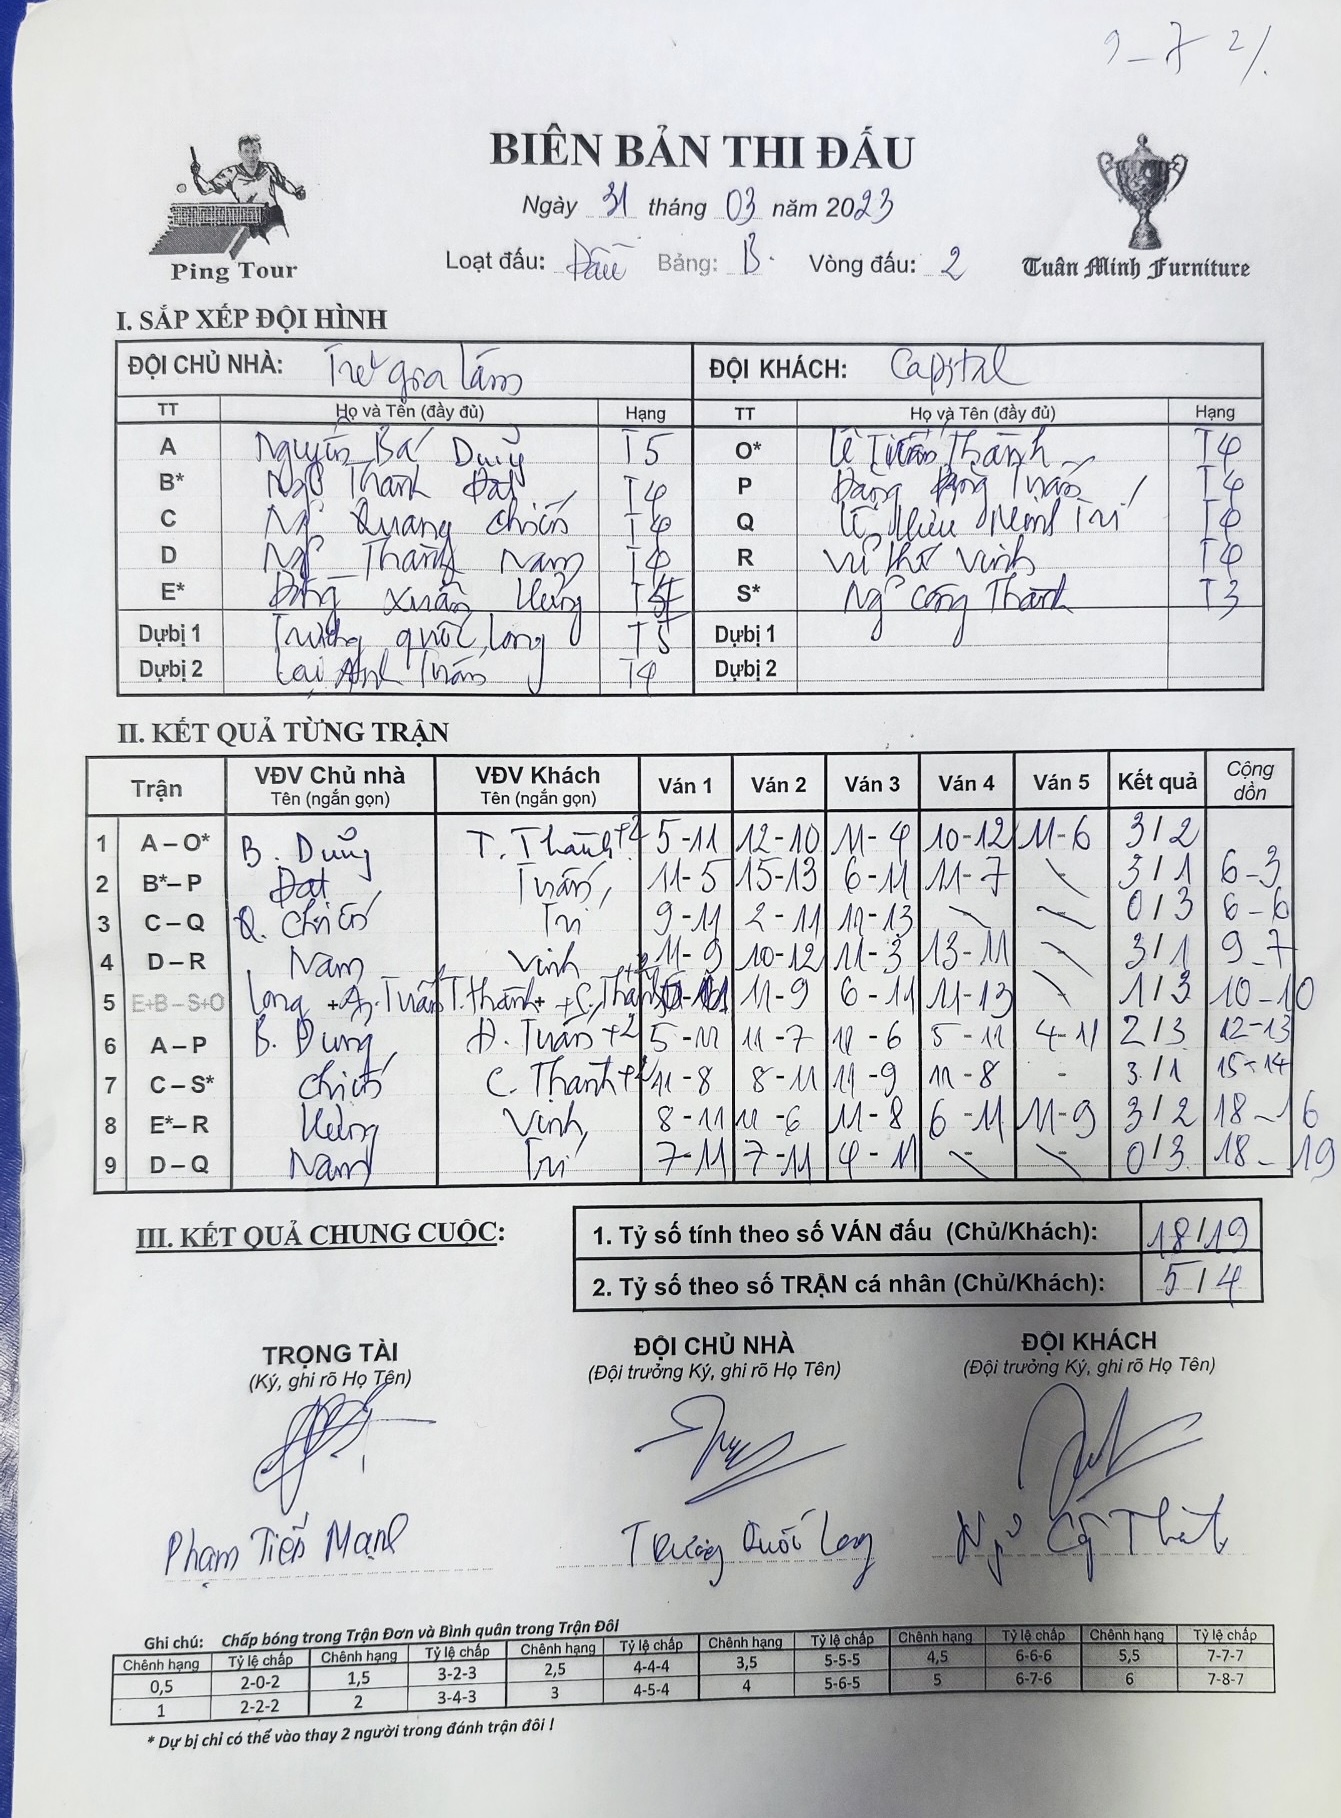 9-7 21.
BIÊN BẢN THI ĐẤU
Ngày 31 tháng 03 năm 2023
Ping Tour
Loạt đấu: Đấu Bảng: B. Vòng đấu: 2
Tuấn Minh Furniture
I. SẮP XẾP ĐỘI HÌNH
ĐỘI CHỦ NHÀ: Trẻ gia lâm ĐỘI KHÁCH: Capital
TT Họ và Tên (đầy đủ) Hạng TT Họ và Tên (đầy đủ) Hạng
A Nguyễn Bá Dũng T5 O* Lê Tuấn Thành T4
B* Ngô Thành Đạt T4 P Đặng Tuấn T4
C Ngô Quang Chiến T4 Q Minh Trí T4
D Ngô Thành Nam T4 R Vũ Thế Vinh T4
E* Đặng Xuân Hưng S* Ngô Công Thành T3
Dự bị 1 Trương quốc Long T5 Dự bị 1
Dự bị 2 Lại Anh Tuấn T4 Dự bị 2
II. KẾT QUẢ TỪNG TRẬN
Trận VĐV Chủ nhà Tên (ngắn gọn) VĐV Khách Tên (ngắn gọn) Ván 1 Ván 2 Ván 3 Ván 4 Ván 5 Kết quả Cộng dồn
1 A – O* B. Dũng T. Thành +2 5-11 12-10 11-4 10-12 11-6 3/2
2 B* – P Đạt Tuấn 11-5 15-13 6-11 11-7 - 3/1 6-3
3 C – Q Q. Chiến Trí 9-11 2-11 11-13 - - 0/3 6-6
4 D – R Nam Vinh 11-9 10-12 11-3 13-11 - 3/1 9-7
5 E+B – S+O Long + A. Tuấn T. Thành + C. Thành 11-9 6-11 11-13 - 1/3 10-10
6 A – P B. Dũng Đ. Tuấn +2 5-11 11-7 11-6 5-11 4-11 2/3 12-13
7 C – S* Chiến C. Thành +2 11-8 8-11 11-9 11-8 - 3/1 15-14
8 E* – R Hưng Vinh 8-11 11-6 11-8 6-11 11-9 3/2 18-16
9 D – Q Nam Trí 7-11 7-11 4-11 - - 0/3 18-19
III. KẾT QUẢ CHUNG CUỘC:
1. Tỷ số tính theo số VÁN đấu (Chủ/Khách): 18/19
2. Tỷ số theo số TRẬN cá nhân (Chủ/Khách): 5/4
TRỌNG TÀI ĐỘI CHỦ NHÀ ĐỘI KHÁCH
(Ký, ghi rõ Họ Tên) (Đội trưởng Ký, ghi rõ Họ Tên) (Đội trưởng Ký, ghi rõ Họ Tên)
Phạm Tiến Mạnh Trương Quốc Long Ngô Công Thành
Ghi chú: Chấp bóng trong Trận Đơn và Bình quân trong Trận Đôi
Chênh hạng Tỷ lệ chấp Chênh hạng Tỷ lệ chấp Chênh hạng Tỷ lệ chấp Chênh hạng Tỷ lệ chấp Chênh hạng Tỷ lệ chấp Chênh hạng Tỷ lệ chấp
0,5 2-0-2 1,5 3-2-3 2,5 4-4-4 3,5 5-5-5 4,5 6-6-6 5,5 7-7-7
1 2-2-2 2 3-4-3 3 4-5-4 4 5-6-5 5 6-7-6 6 7-8-7
* Dự bị chỉ có thể vào thay 2 người trong đánh trận đôi !